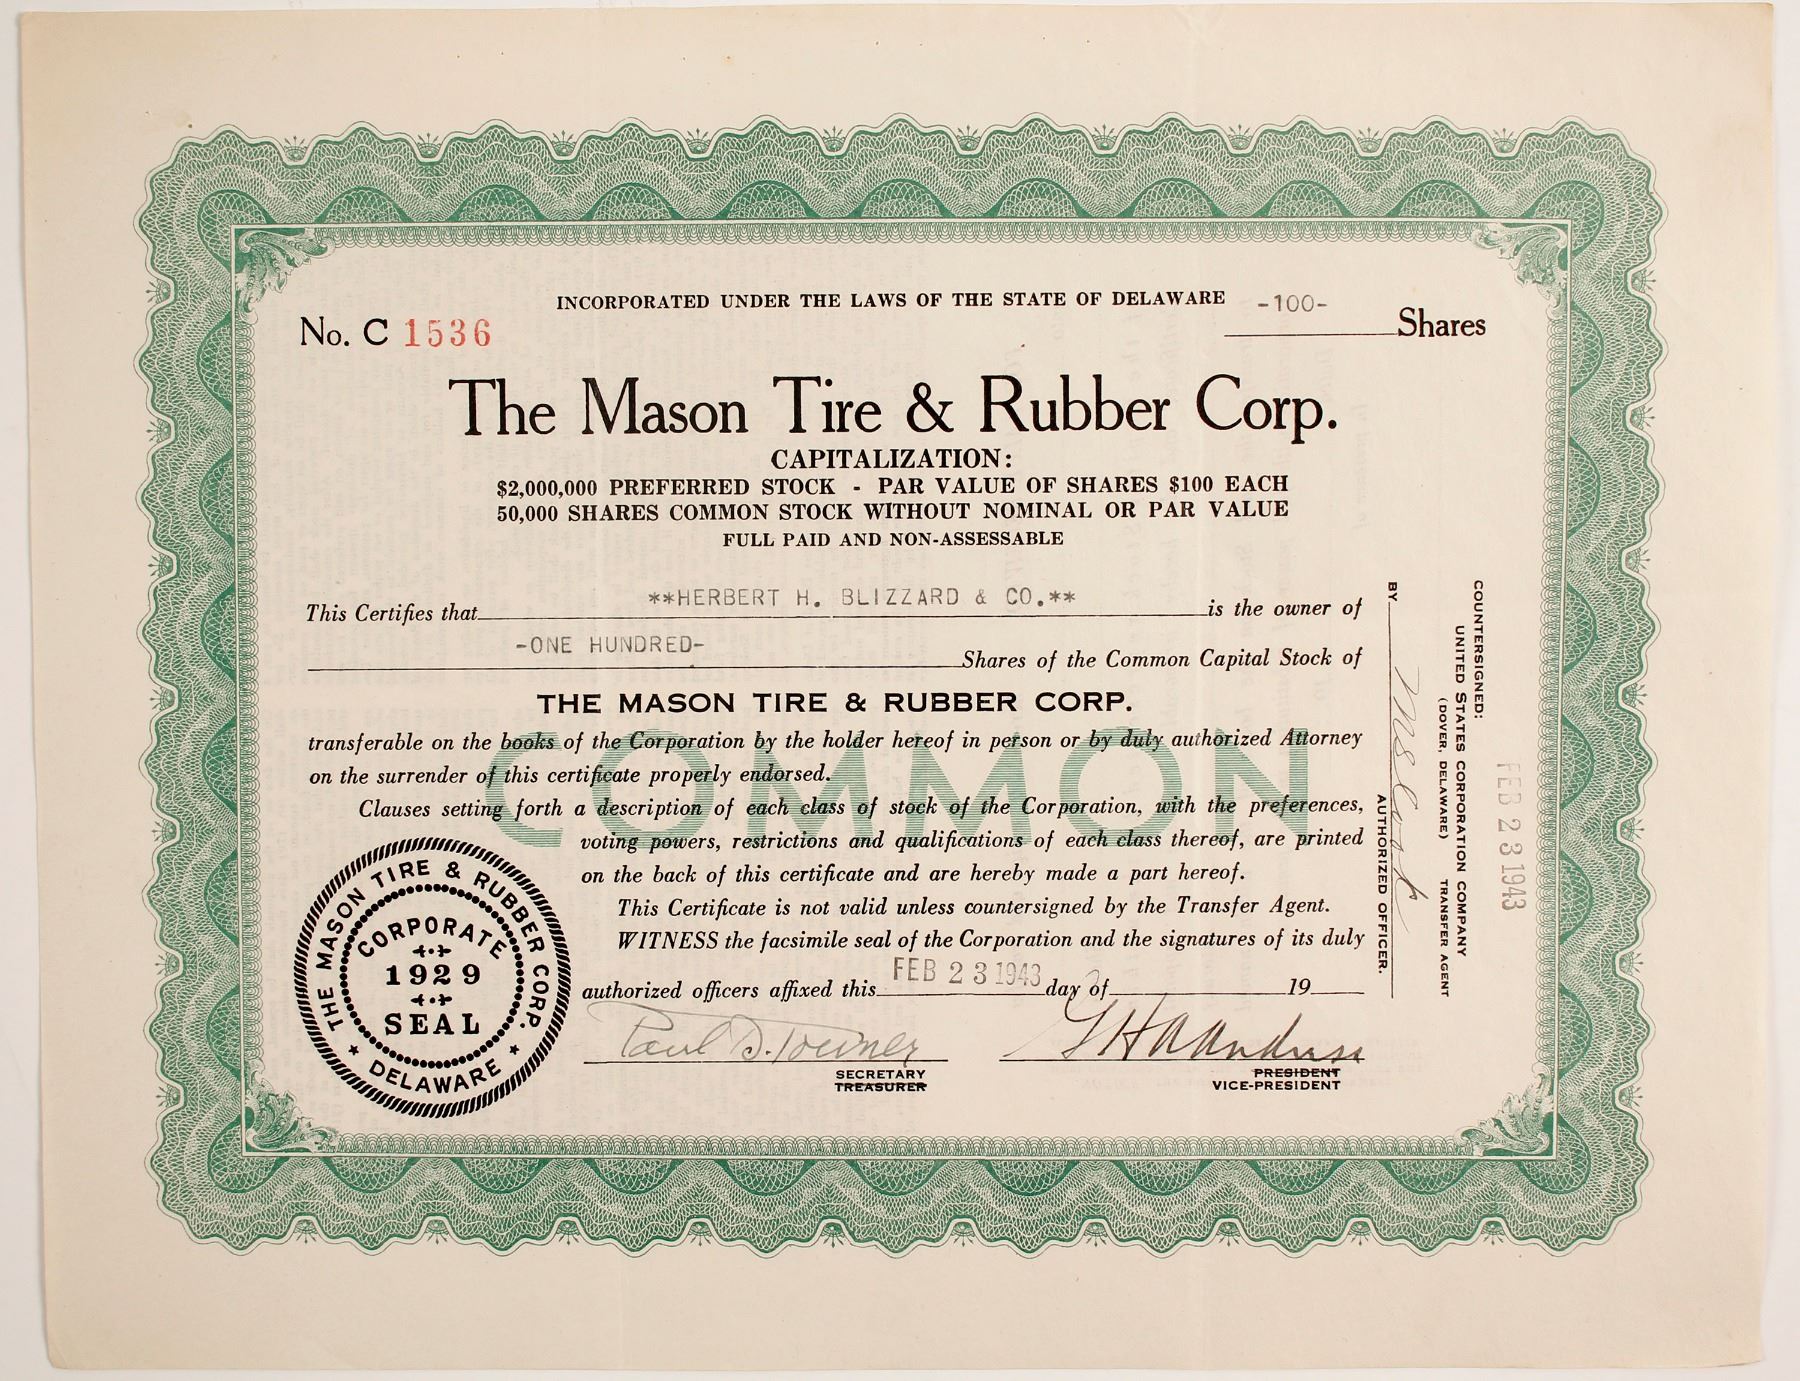 INCORPORATED UNDER THE LAWS OF THE STATE OF DELAWARE
-100-
No. C 1536
Shares
The Mason Tire & Rubber Corp.
CAPITALIZATION:
$2,000,000 PREFERRED STOCK - PAR VALUE OF SHARES $100 EACH
50,000 SHARES COMMON STOCK WITHOUT NOMINAL OR PAR VALUE
FULL PAID AND NON-ASSESSABLE
This Certifies that **HERBERT H. BLIZZARD & CO.** is the owner of
-ONE HUNDRED- Shares of the Common Capital Stock of
THE MASON TIRE & RUBBER CORP.
COMMON
transferable on the books of the Corporation by the holder hereof in person or by duly authorized Attorney
on the surrender of this certificate properly endorsed.
Clauses setting forth a description of each class of stock of the Corporation, with the preferences,
voting powers, restrictions and qualifications of each class thereof, are printed
on the back of this certificate and are hereby made a part hereof.
This Certificate is not valid unless countersigned by the Transfer Agent.
WITNESS the facsimile seal of the Corporation and the signatures of its duly
authorized officers affixed this FEB 23 1943 day of 19
Paul D. Towner
SECRETARY
TREASURER
PRESIDENT
VICE-PRESIDENT
THE MASON TIRE & RUBBER CORP.
CORPORATE
1929
SEAL
DELAWARE
COUNTERSIGNED:
UNITED STATES CORPORATION COMPANY
(DOVER, DELAWARE) TRANSFER AGENT
BY
AUTHORIZED OFFICER.
FEB 23 1943